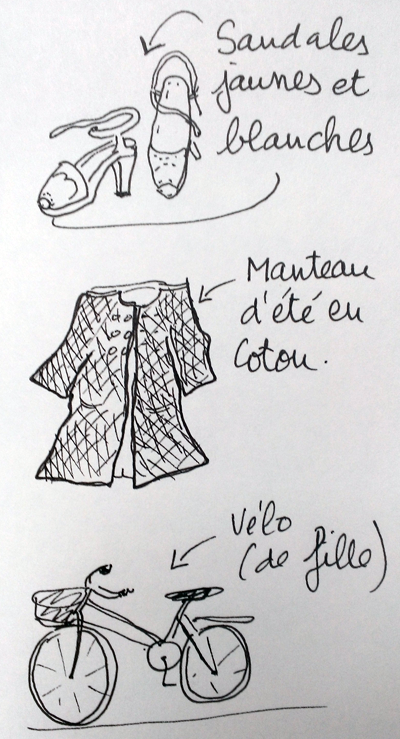 Sandales
jaunes et
blanches
Manteau
d'été en
Coton.
Vélo
(de fille)